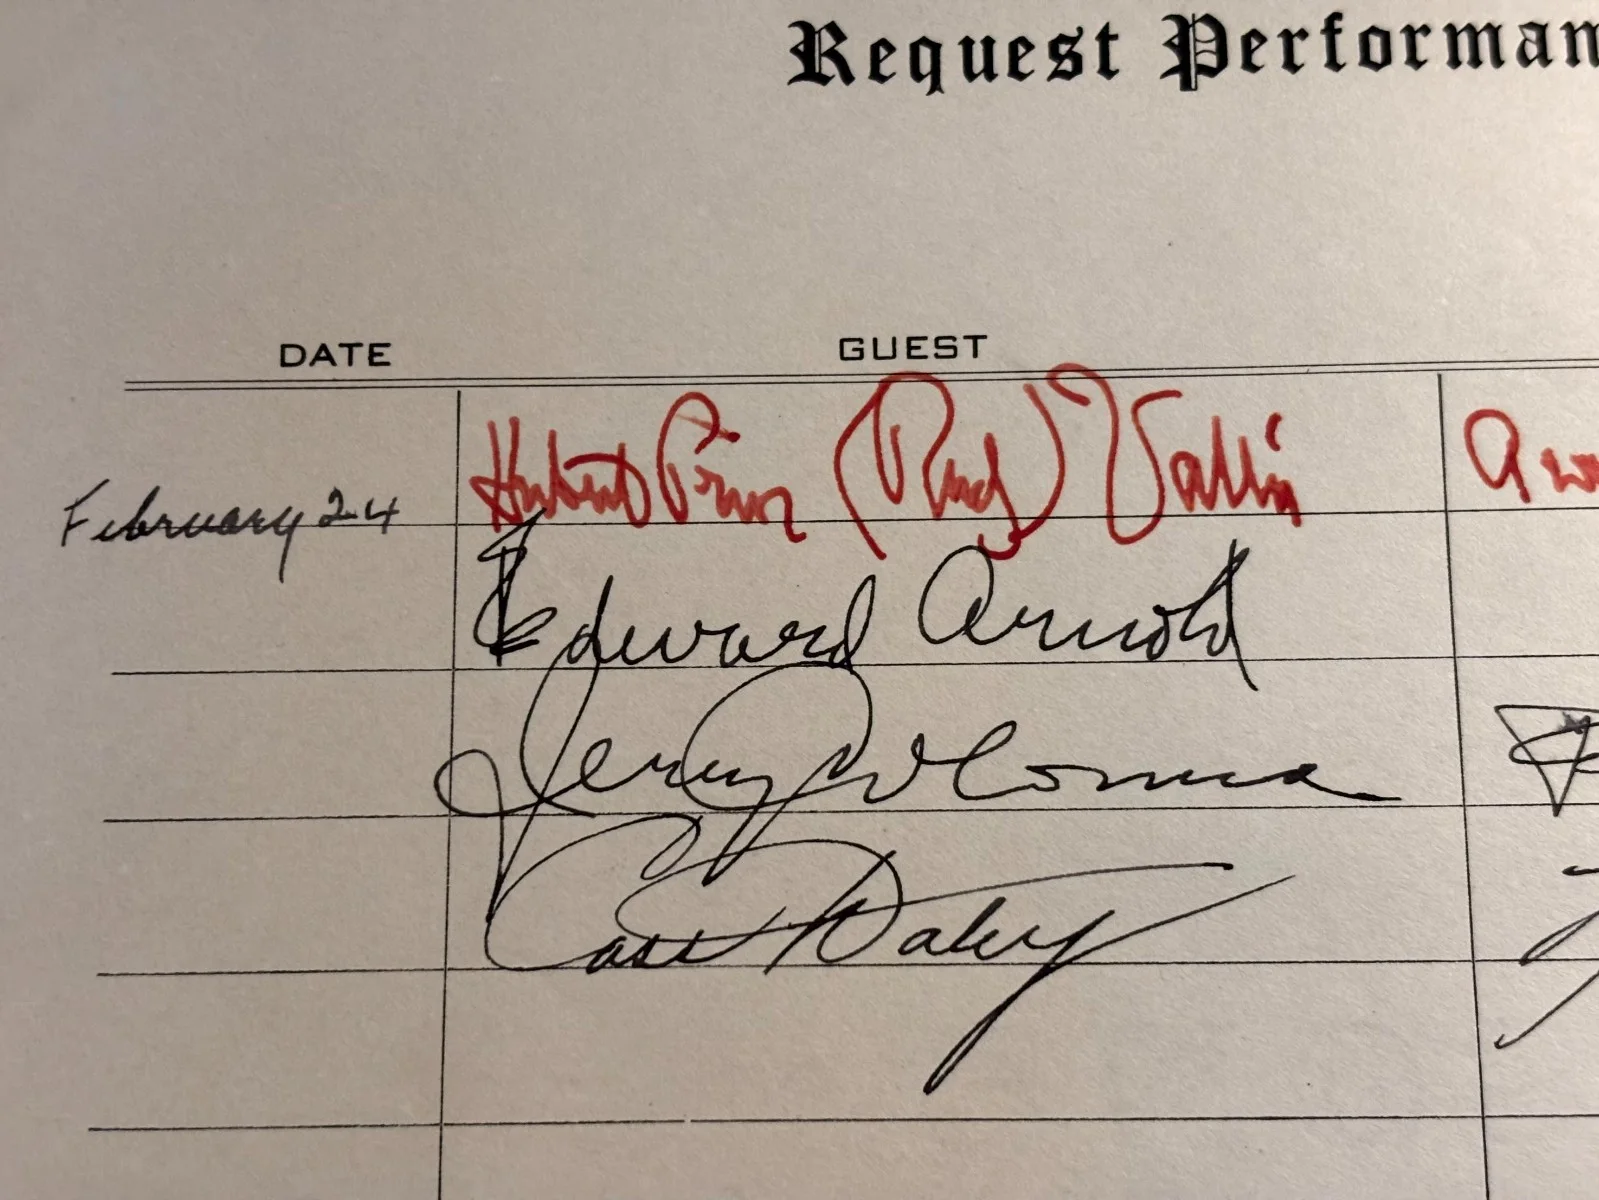 Request Performan
DATE GUEST
February 24 Hubert Prior (Rudy) Vallée
Edward Arnold
Jerry Colonna
Cass Daley